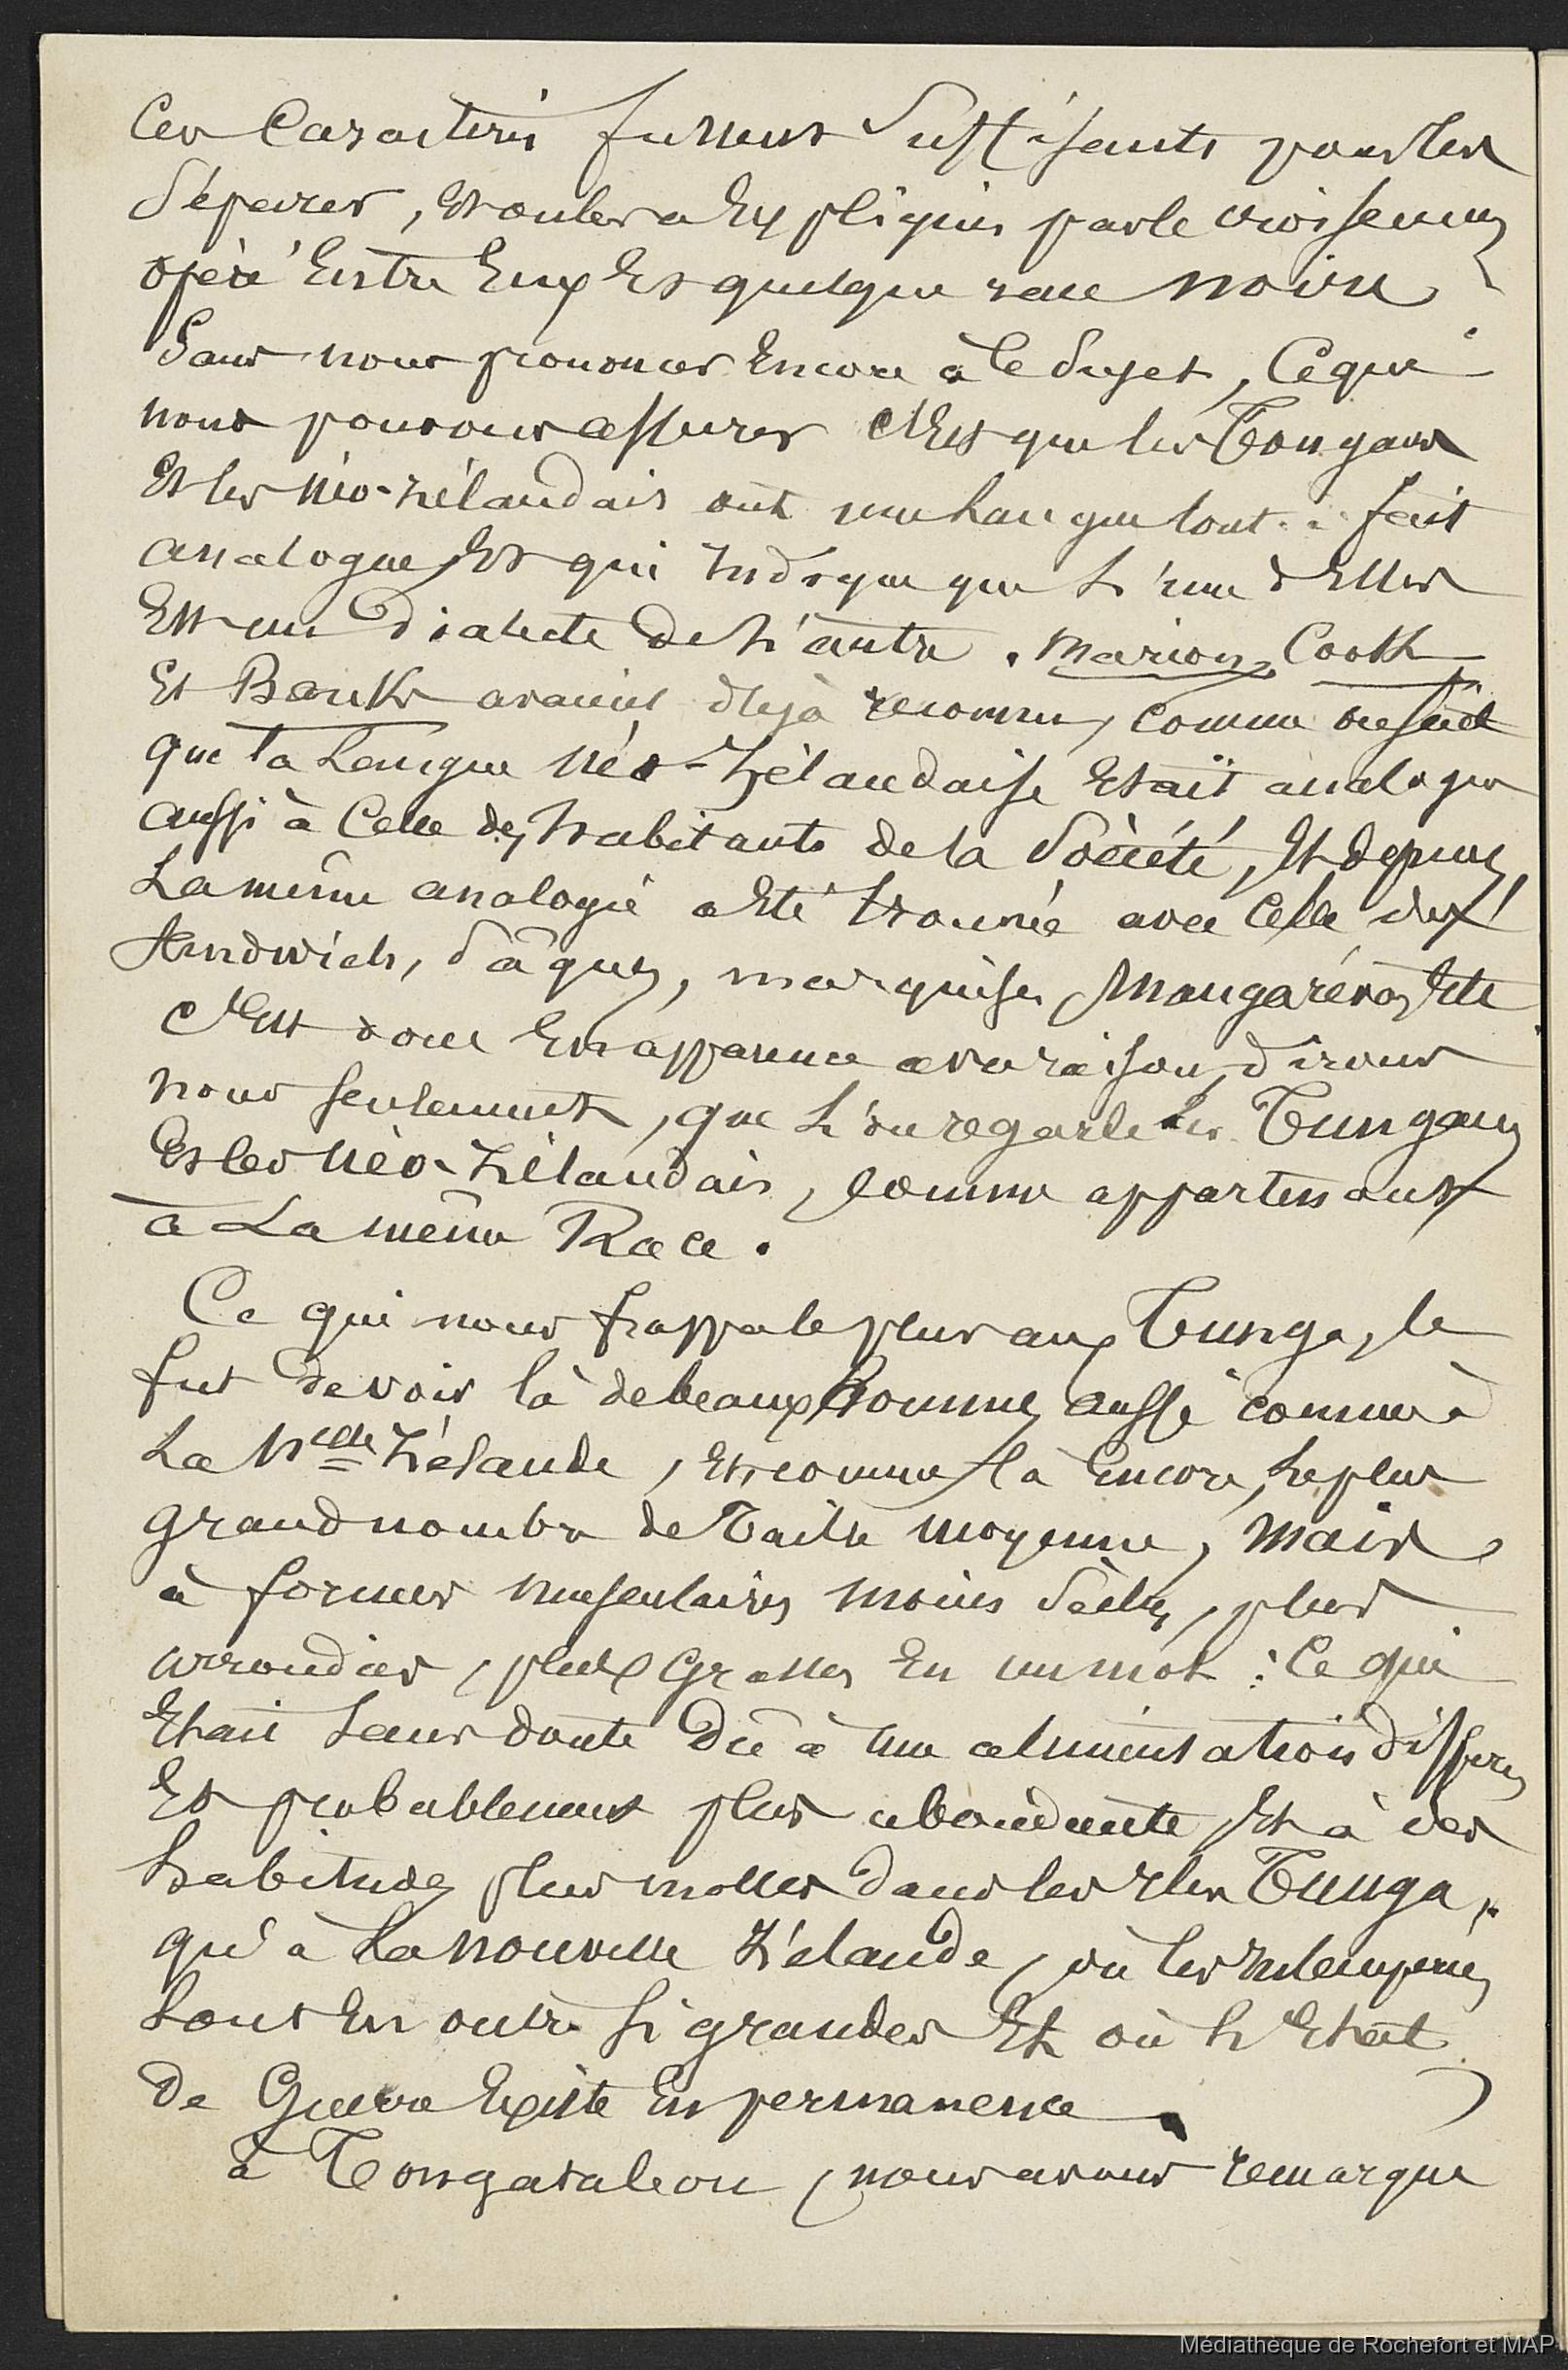 Ces Caractères fussent Suffisants pour les
Séparer, et on les a Expliqués par le croisement
opéré Entre Eux Et quelque race noire.
Sans nous prononcer Encore à ce Sujet, Ce que
nous pouvons assurer C'Est que les Tongans
Et les Néo-Zélandais ont une Langue tout à fait
analogue, Et qui Indique que L'une d'Elles
Est un Dialecte de L'autre. Marion, Cook
Et Banks avaient déjà reconnu, comme on sait
que la Langue Néo-Zélandaise Etait analogue
aussi à Celle des habitants de la Société, Et depuis,
La même analogie a Eté trouvée avec Celle des
Sandwich, Pâques, Marquises, Mangaréva, Etc.
C'Est donc En apparence avec raison, dirons
nous seulement, que L'on regarde les Tungans
Et les Néo-Zélandais, comme appartenant
à La même Race.
Ce qui nous frappa le plus aux Tunga, ce
fut de voir là de beaux hommes aussi comme à
La Nelle Zélande, Et, comme là Encore, Le plus
grand nombre de Taille moyenne, mais
à formes musculaires moins Sèches, plus
arrondies, plus Grasses En un mot : Ce qui
Etait Sans doute Dû à une alimentation différe
Et probablement plus abondante, Et à des
habitudes plus molles Dans les Iles Tunga,
qu'à La nouvelle Zélande, où les Intempéries
Sont En outre si grandes Et où L'Etat
de Guerre Existe En permanence.
à Tongatabou, nous avons remarqué
Médiathèque de Rochefort et MAP